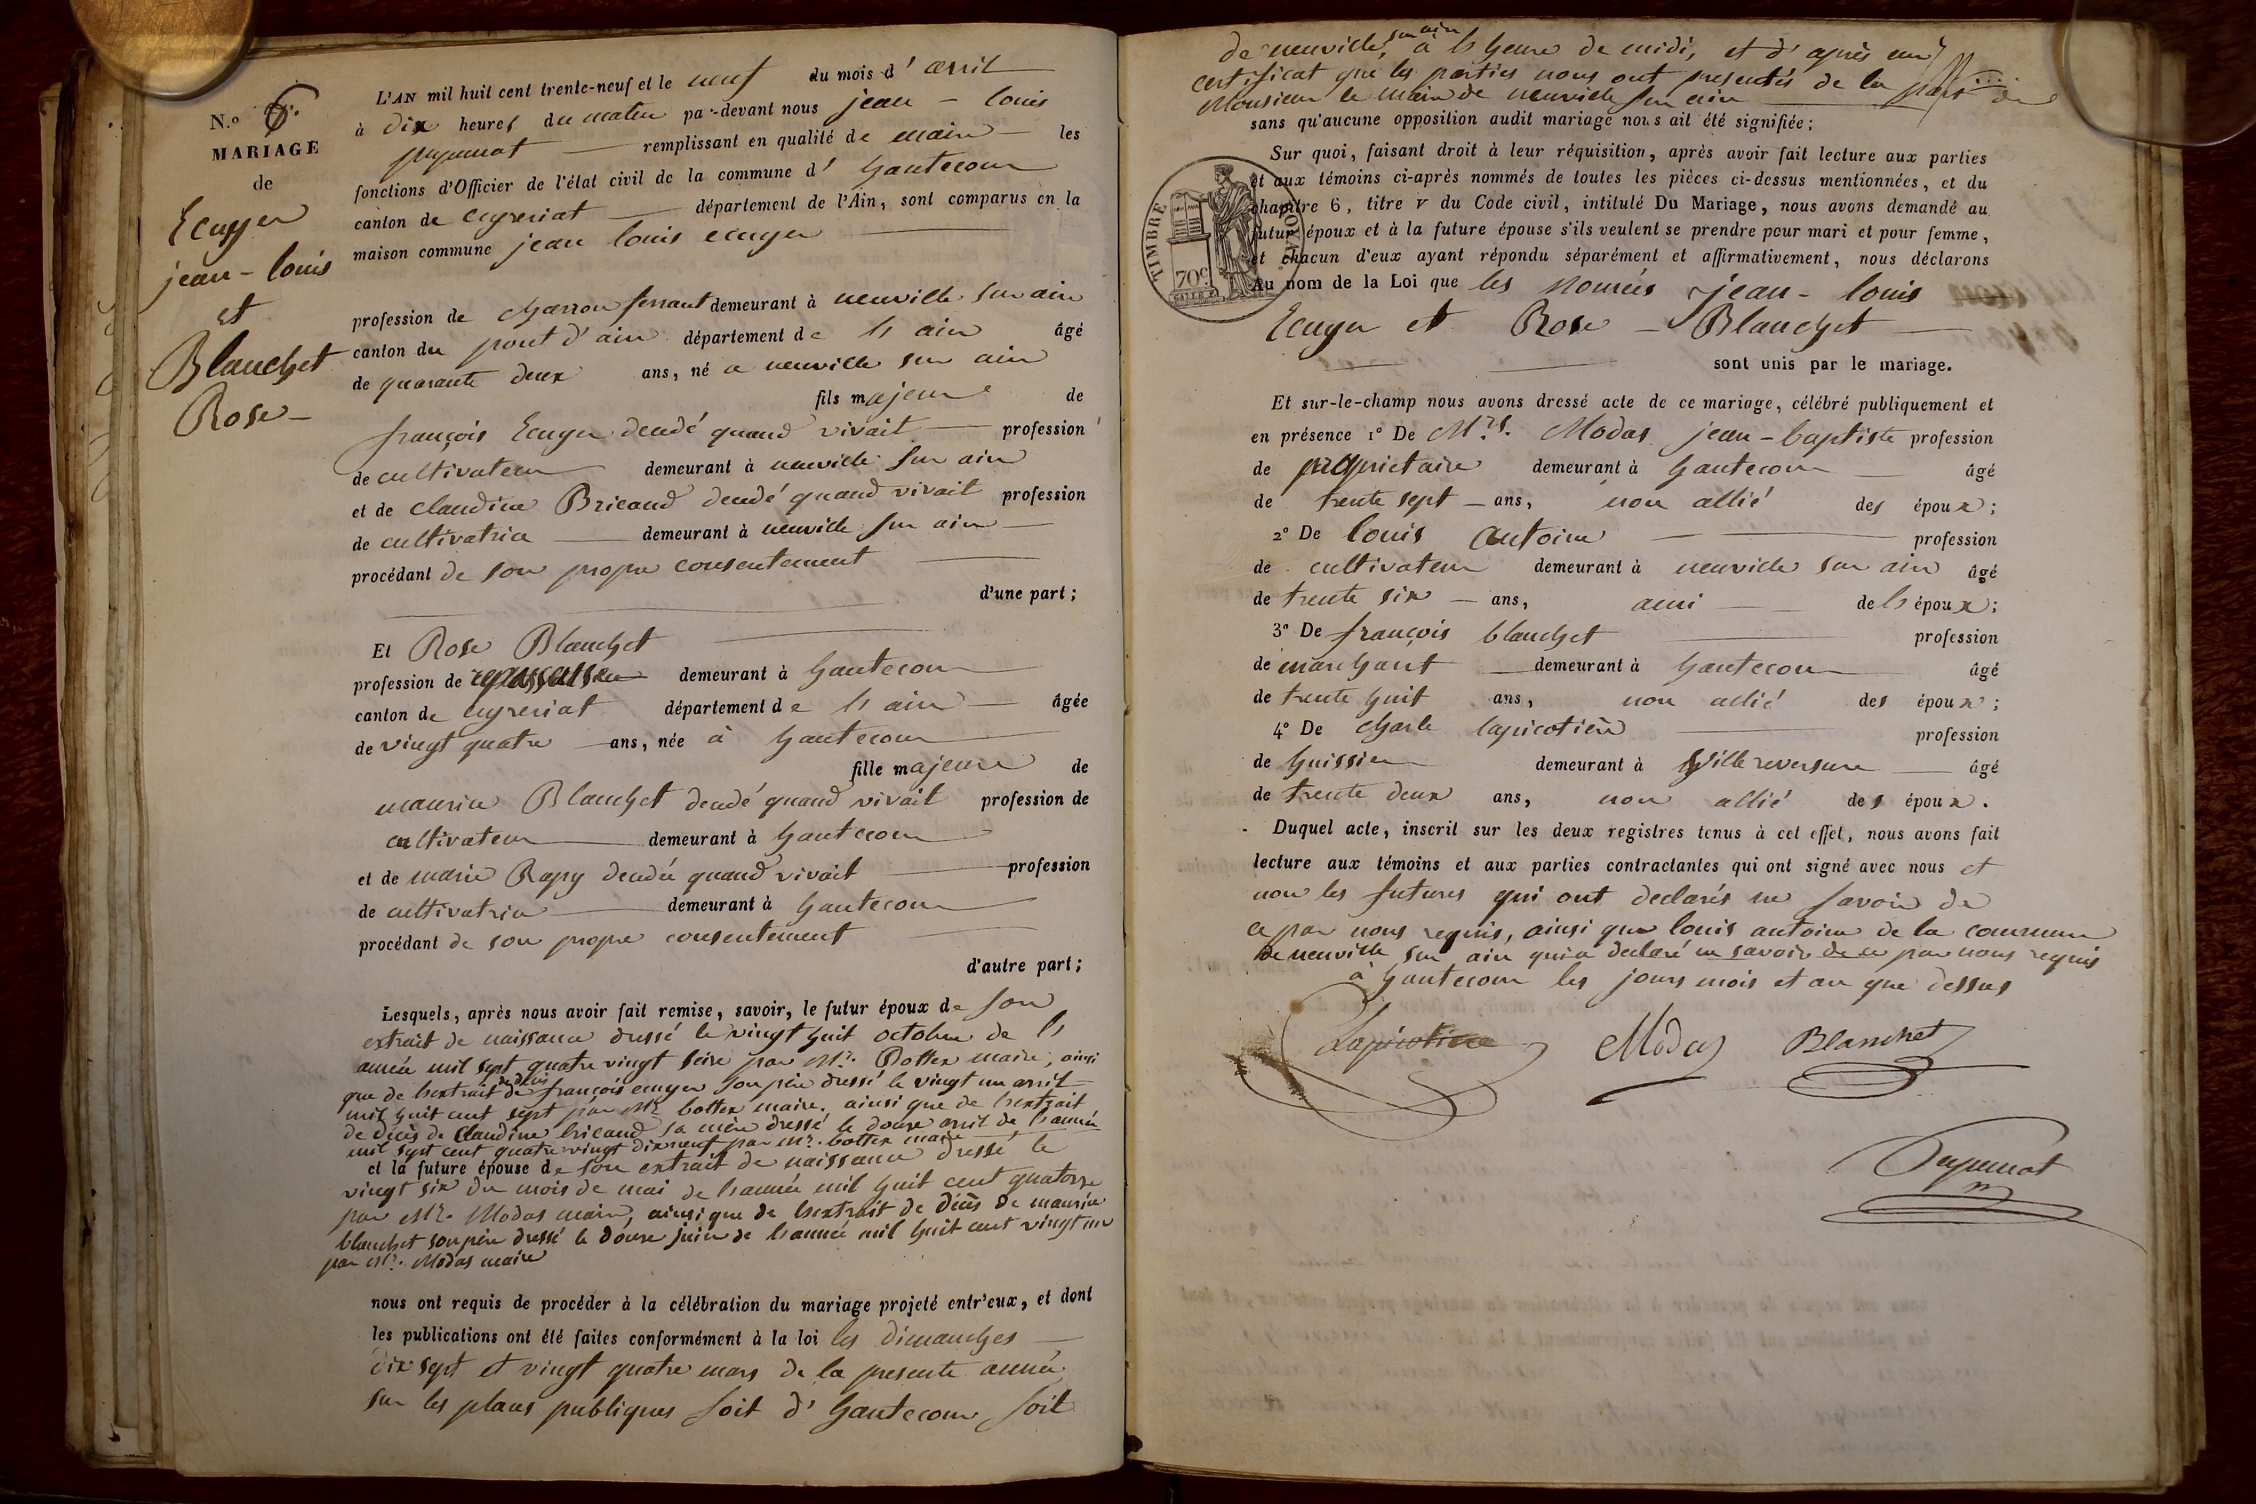 N.º 6.
MARIAGE
de
Ecuyer
jean-louis
et
Blanchet
Rose
L'AN mil huit cent trente-neuf et le neuf du mois d'avril
à dix heures du matin par-devant nous jean-louis
remplissant en qualité de maire les
fonctions d'Officier de l'état civil de la commune d'hautecour
canton de ceyzeriat département de l'Ain, sont comparus en la
maison commune jean louis ecuyer
profession de charron ferrant demeurant à neuville sur ain
canton du pont d'ain département de l'ain âgé
de quarante deux ans, né a neuville sur ain
fils majeur de
françois Ecuyer décédé quand vivait profession
de cultivateur demeurant à neuville sur ain
et de claudine Bricaud décédé quand vivait profession
de cultivatrice demeurant à neuville sur ain
procédant de son propre consentement
d'une part;
Et Rose Blanchet
profession de demeurant à hautecour
canton de ceyzeriat département de l'ain âgée
de vingt quatre ans, née à hautecour
fille majeure de
maurice Blanchet décédé quand vivait profession de
cultivateur demeurant à hautecour
et de marie Rapy décédée quand vivait profession
de cultivatrice demeurant à hautecour
procédant de son propre consentement
d'autre part;
Lesquels, après nous avoir fait remise, savoir, le futur époux de son
extrait de naissance dressé le vingt huit octobre de l'
année mil sept quatre vingt seize par Mr. Bottex maire, ainsi
que de l'extrait de décès de françois ecuyer son père dressé le vingt un avril
mil huit cent sept par Mr. bottex maire. ainsi que de l'extrait
de décès de Claudine bricaud sa mère dressé le douze avril de l'année
mil sept cent quatre vingt dix neuf par mr. bottex maire
et la future épouse de son extrait de naissance dressé le
vingt six du mois de mai de l'année mil huit cent quatorze
par Mr. Modas maire, ainsi que de l'extrait de décès de maurice
blanchet son père dressé le douze juin de l'année mil huit cent vingt un
par Mr. Modas maire
nous ont requis de procéder à la célébration du mariage projeté entr'eux, et dont
les publications ont été faites conformément à la loi les dimanches
dix sept et vingt quatre mars de la presente année
sur les places publiques soit d'hautecour soit
de neuville sur ain à l'heure de midi, et d'après un
certificat que les parties nous ont presentés de la part de
Monsieur le maire de neuville sur ain
sans qu'aucune opposition audit mariage nous ait été signifiée;
Sur quoi, faisant droit à leur réquisition, après avoir fait lecture aux parties
et aux témoins ci-après nommés de toutes les pièces ci-dessus mentionnées, et du
chapitre 6, titre v du Code civil, intitulé Du Mariage, nous avons demandé au
futur époux et à la future épouse s'ils veulent se prendre pour mari et pour femme,
et chacun d'eux ayant répondu séparément et affirmativement, nous déclarons
Au nom de la Loi que les Només jean-louis
Ecuyer et Rose Blanchet
sont unis par le mariage.
TIMBRE ROYAL
70c.
Et sur-le-champ nous avons dressé acte de ce mariage, célébré publiquement et
en présence 1º De Mrs. Modas jean-baptiste profession
de proprietaire demeurant à hautecour âgé
de trente sept ans, non allié des époux;
2º De louis Antoine profession
de cultivateur demeurant à neuville sur ain âgé
de trente six ans, ami de l'époux;
3º De françois blanchet profession
de marchant demeurant à hautecour âgé
de trente huit ans, non allié des époux;
4º De charle lapicotière profession
de huissier demeurant à Villereversure âgé
de trente deux ans, non allié des époux.
Duquel acte, inscrit sur les deux registres tenus à cet effet, nous avons fait
lecture aux témoins et aux parties contractantes qui ont signé avec nous et
non les futures qui ont declarés ne savoir de
ce par nous requis, ainsi que louis antoine de la commune
de neuville sur ain qui a declaré ne savoir de ce par nous requis
à hautecour les jours mois et an que dessus
Lapicotière Modas Blanchet